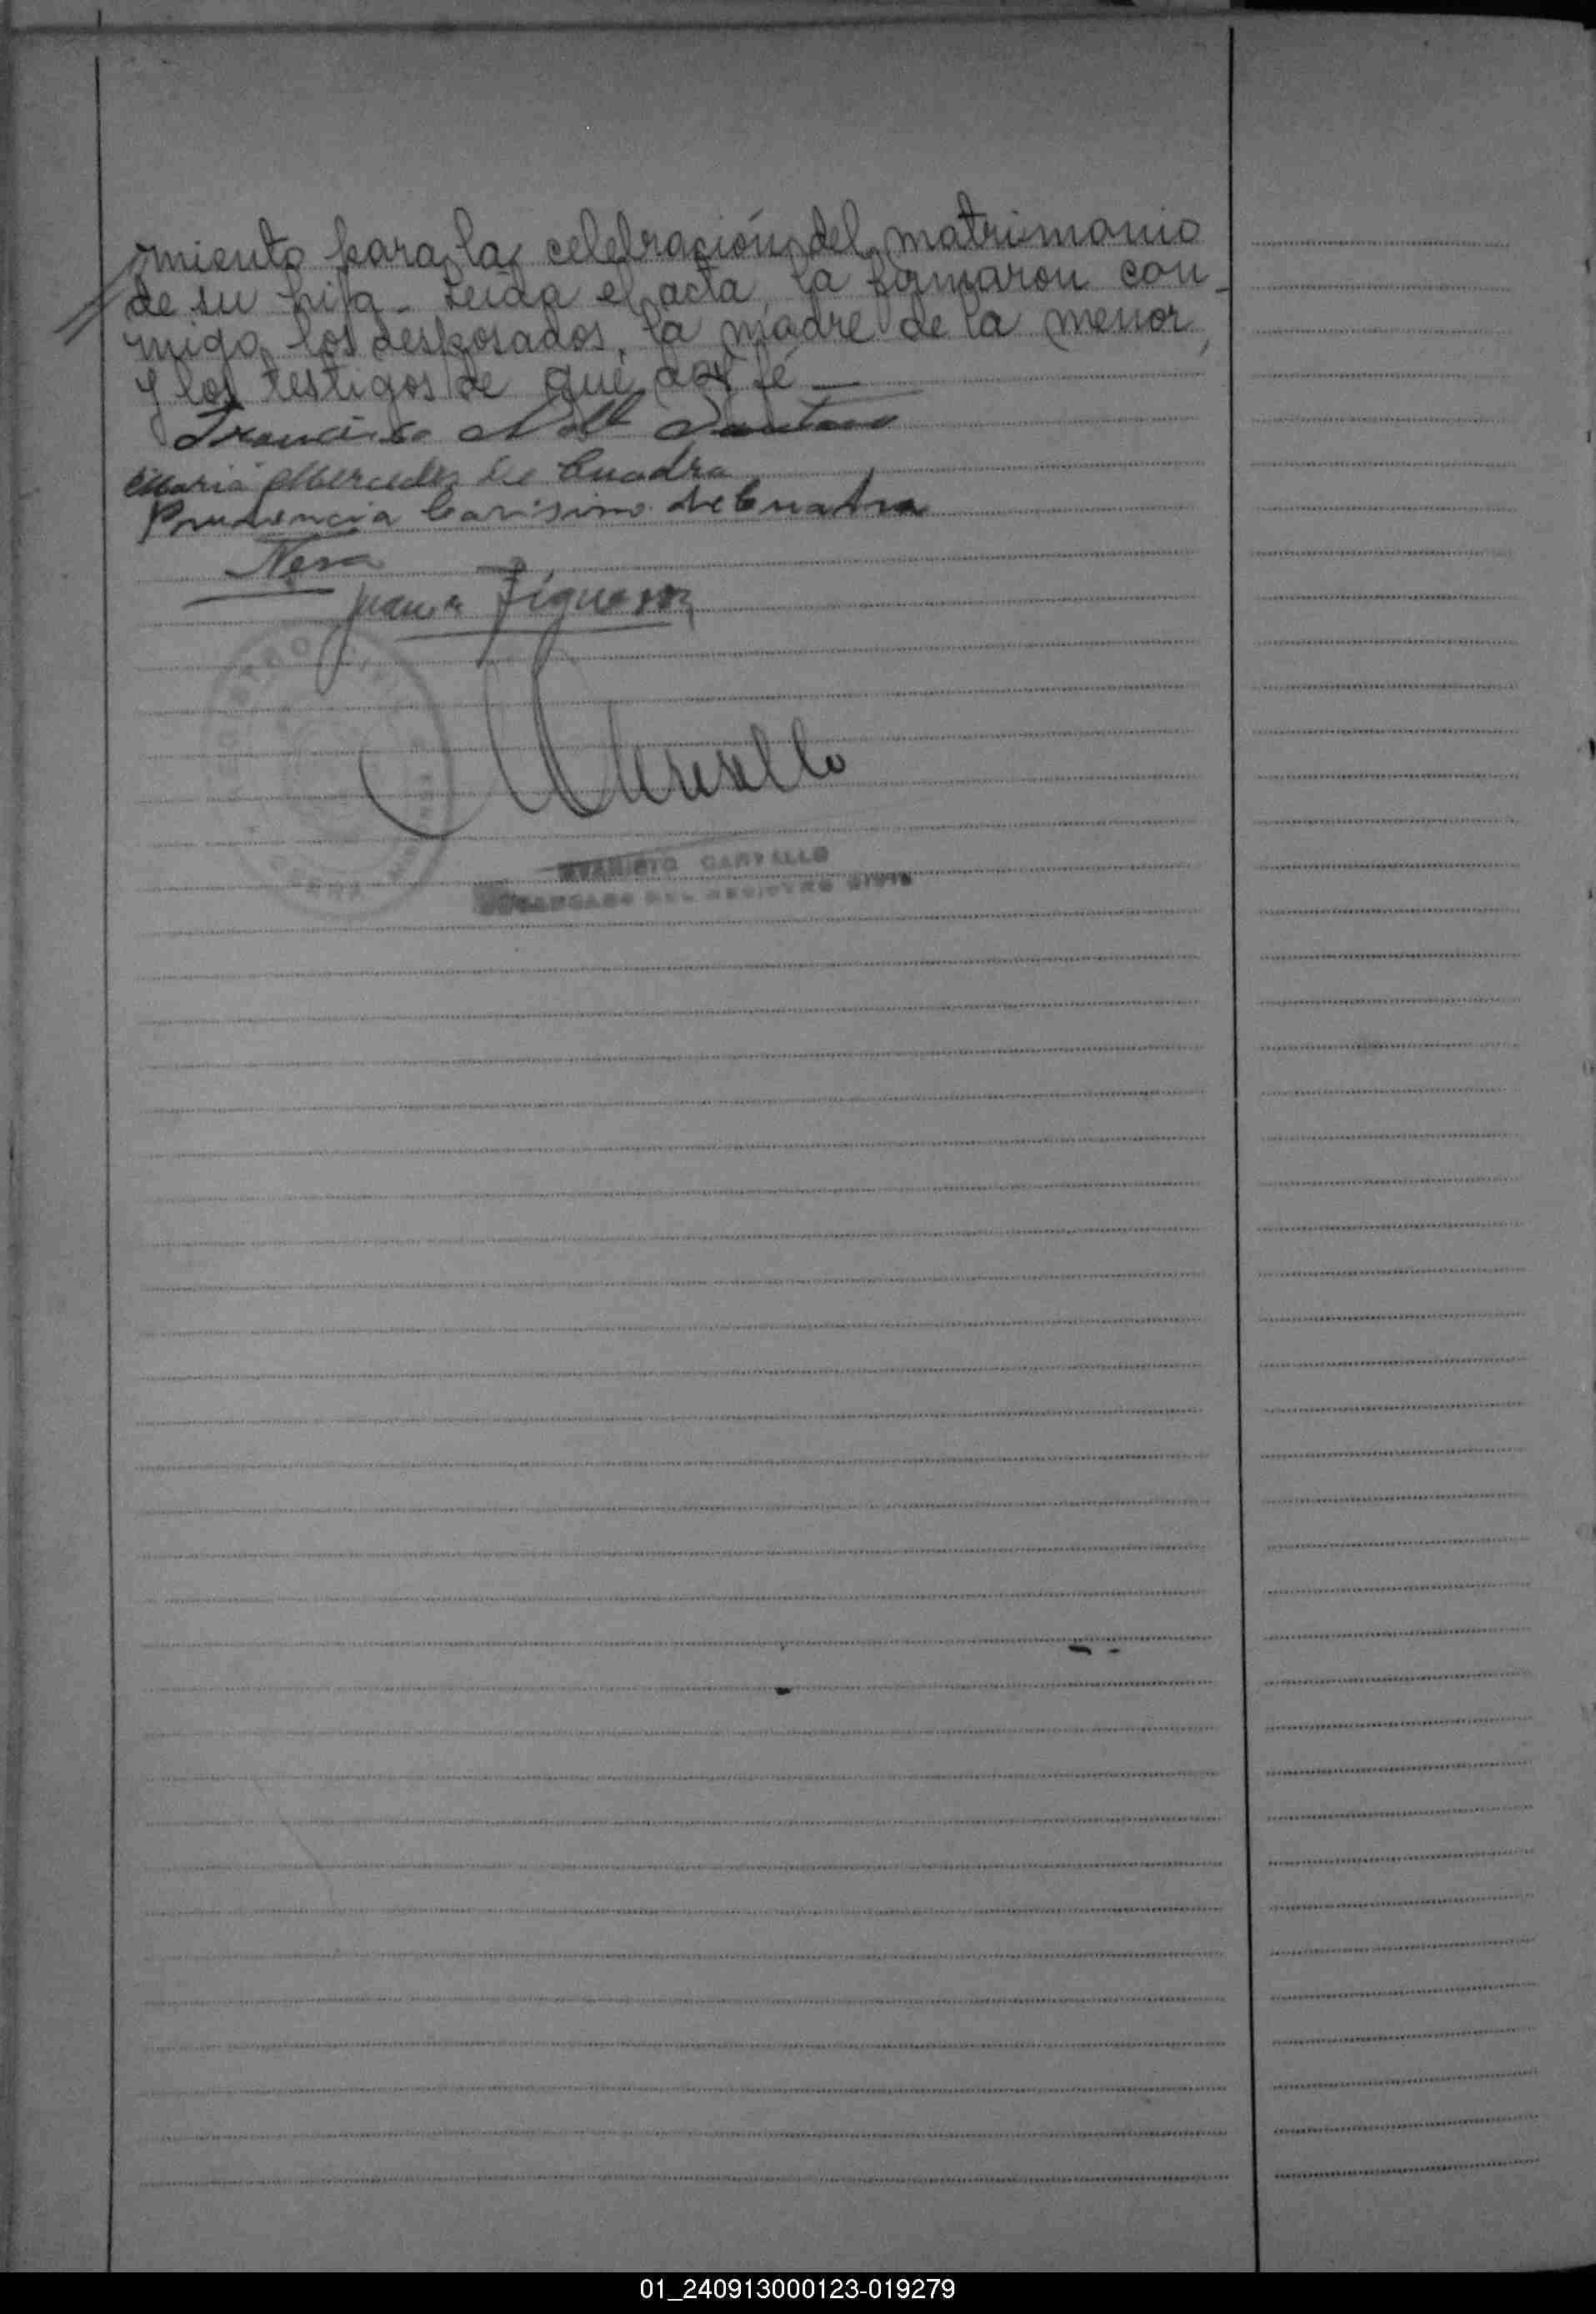 miento para la celebración del matrimonio
de su hija - Leída el acta, la firmaron con-
migo, los desposados, la madre de la menor,
y los testigos de que doy fé —
Francisco
María Mercedes de Cuadra
Prudencia Carísimo de Cuadra
Juan Figueroa
EVARISTO CARVALLO
ENCARGADO DEL REGISTRO CIVIL
01_240913000123-019279